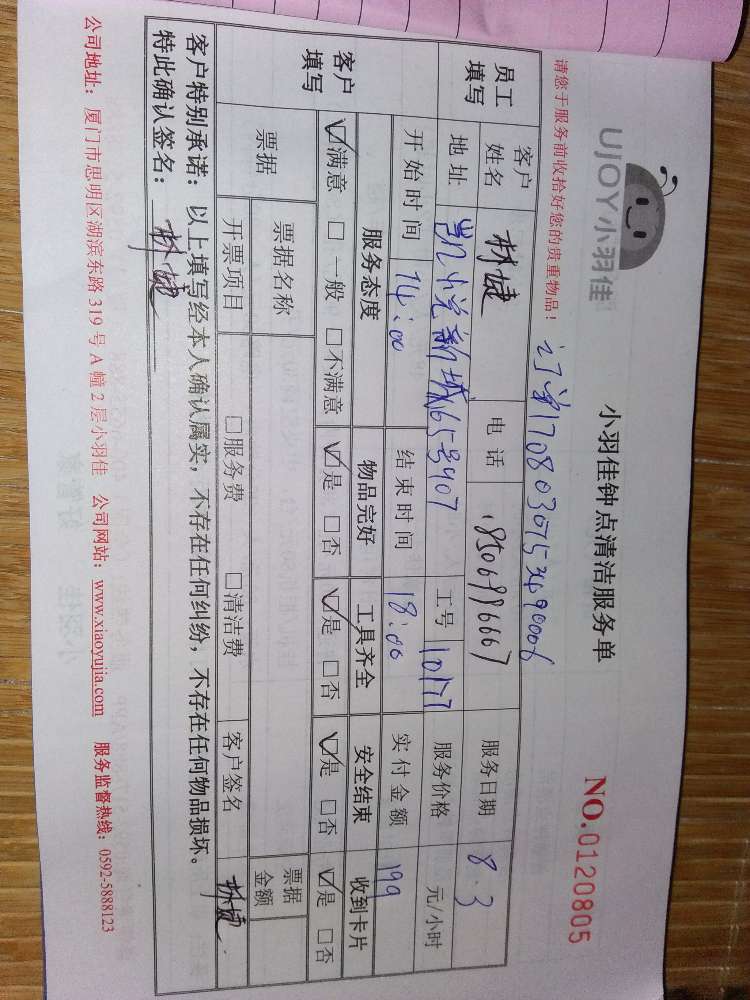 UJOY小羽佳
小羽佳钟点清洁服务单
NO.0120805
请您于服务前收拾好您的贵重物品！
员工填写
客户姓名 林婕 电话 服务日期 8.3
地址 凯悦新城65号907 工号 服务价格 元/小时
开始时间 14:00 结束时间 18:00 实付金额 199
客户填写
服务态度 物品完好 工具齐全 安全结束 收到卡片
☑满意 □一般 □不满意 ☑是 □否 ☑是 □否 ☑是 □否 ☑是 □否
票据 票据名称 票据金额
开票项目 □服务费 □清洁费 客户签名 林婕
客户特别承诺：以上填写经本人确认属实，不存在任何纠纷，不存在任何物品损坏。
特此确认签名：林婕
公司地址：厦门市思明区湖滨东路 319 号 A 幢 2 层小羽佳 公司网站：www.xiaoyujia.com 服务监督热线：0592-5888123